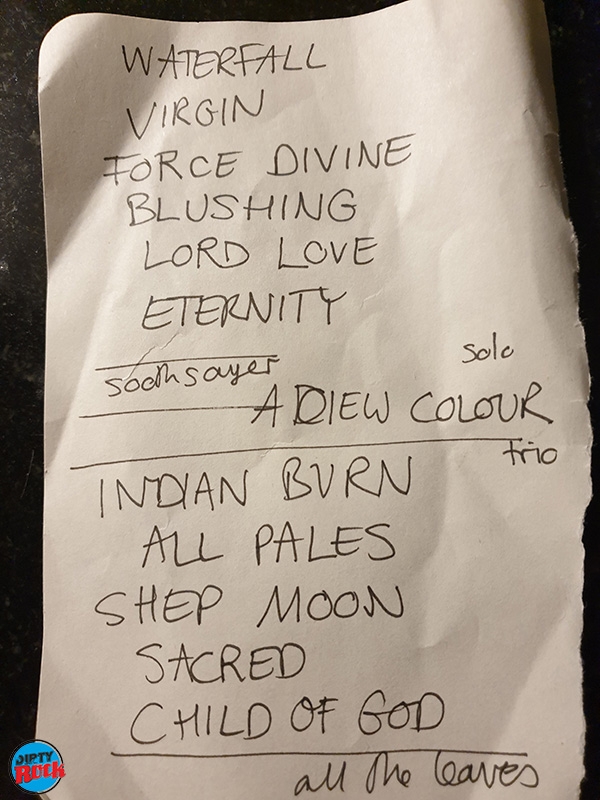 WATERFALL
VIRGIN
FORCE DIVINE
BLUSHING
LORD LOVE
ETERNITY
solo
soothsayer
ADIEW COLOUR
trio
INDIAN BURN
ALL PALES
SHEP MOON
SACRED
CHILD OF GOD
all the leaves
DIRTY
ROCK